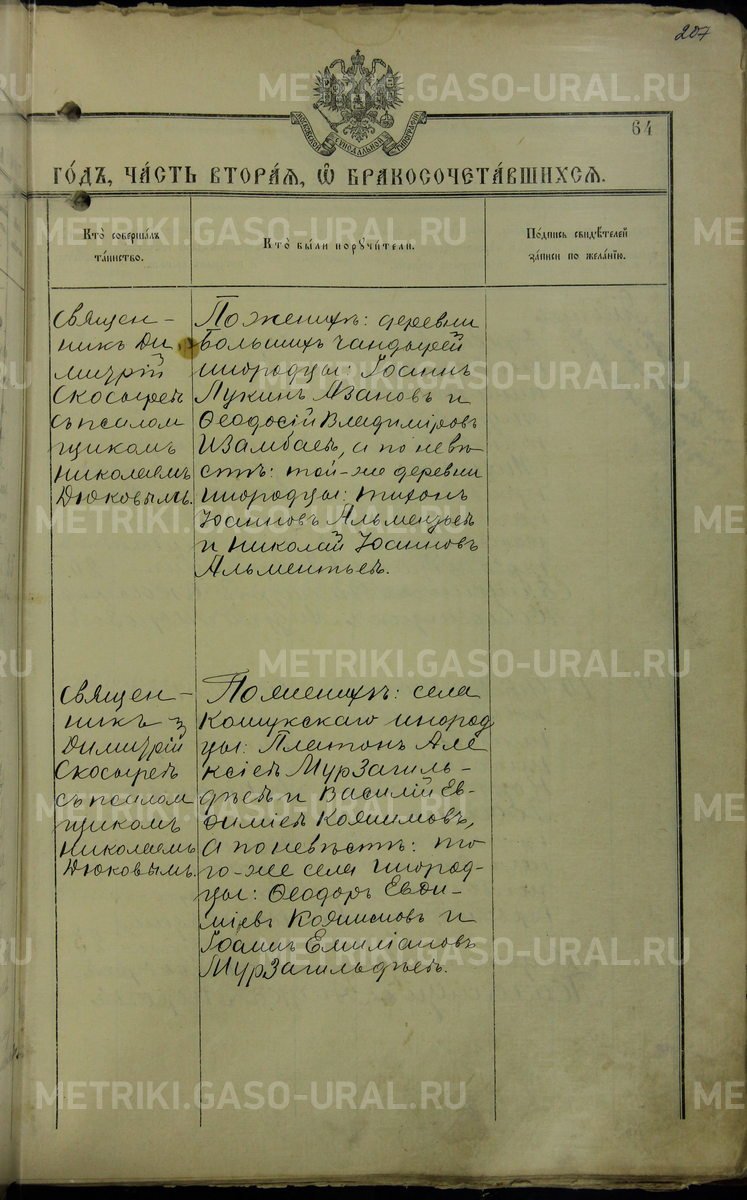 207
64
МОСКОВСКОЙ СѴНОДАЛЬНОЙ ТИПОГРАФІИ
ГО́ДЪ, ЧА́СТЬ ВТОРА́Я, Ѡ҆ БРАКОСОЧЕТА́ВШИХСЯ.
Кто̀ соверша́лъ
та́инство.
Кто̀ бы́ли порꙋчи́тели.
По́дпись свидѣ́телей
за́писи по жела́нїю.
Священ-
никъ Ди
митрій
Скосыревъ
съ псалом
щикомъ
Николаемъ
Дюковымъ.
По женихѣ: деревни
Большихъ Чандырей
инородцы: Іоаннъ
Лукинъ Азановъ и
Ѳеодосій Владиміровъ
Изамбаевъ, а по невѣ
стѣ: той-же деревни
инородцы: Тихонъ
Іоанновъ Альментьевъ
и Николай Іоанновъ
Альментьевъ.
Священ-
никъ
Димитрій
Скосыревъ
съ псалом
щикомъ
Николаемъ
Дюковымъ.
По женихѣ: села
Кошукскаго инород
цы: Платонъ Але
ксіевъ Мурзагиль-
дѣевъ и Василій Ев-
ѳиміевъ Кояшимовъ,
а по невѣстѣ: то
го-же села инород-
цы: Ѳеодоръ Евѳи-
міевъ Кояшимовъ и
Іоаннъ Емиліановъ
Мурзагильдѣевъ.
METRIKI.GASO-URAL.RU